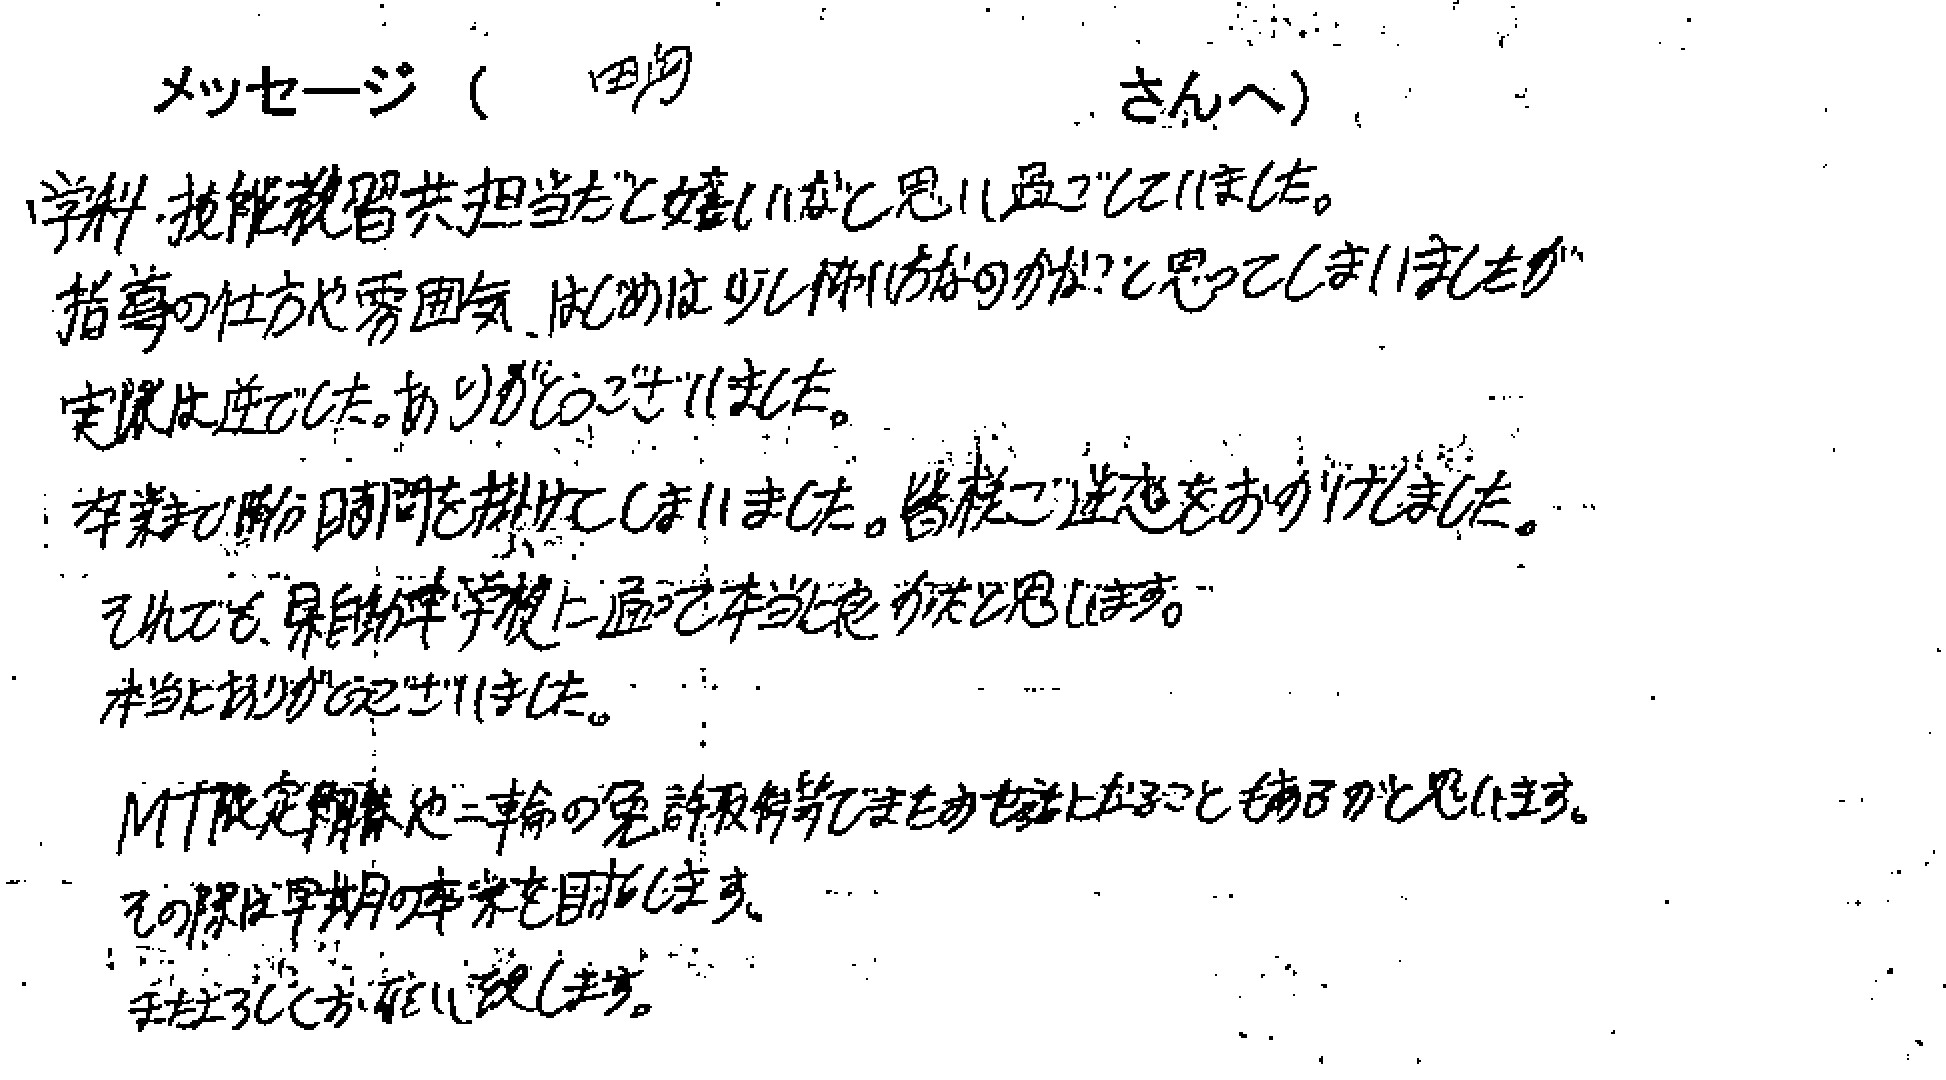 メッセージ ( さんへ)
学科・技能教習共担当だと嬉しいなと思い過ごしていました。
指導の仕方や雰囲気、はじめは少し怖い方なのかな?と思ってしまいましたが
実際は逆でした。ありがとうございました。
卒業まで随分時間を掛けてしまいました。皆様ご迷惑をおかけしました。
それでも、県自動車学校に通って本当に良かったと思います。
本当にありがとうございました。
MT限定解除や二輪の免許取得等でまたお世話になることもあるかと思います。
その際は早期の卒業を目指します。
またよろしくお願い致します。